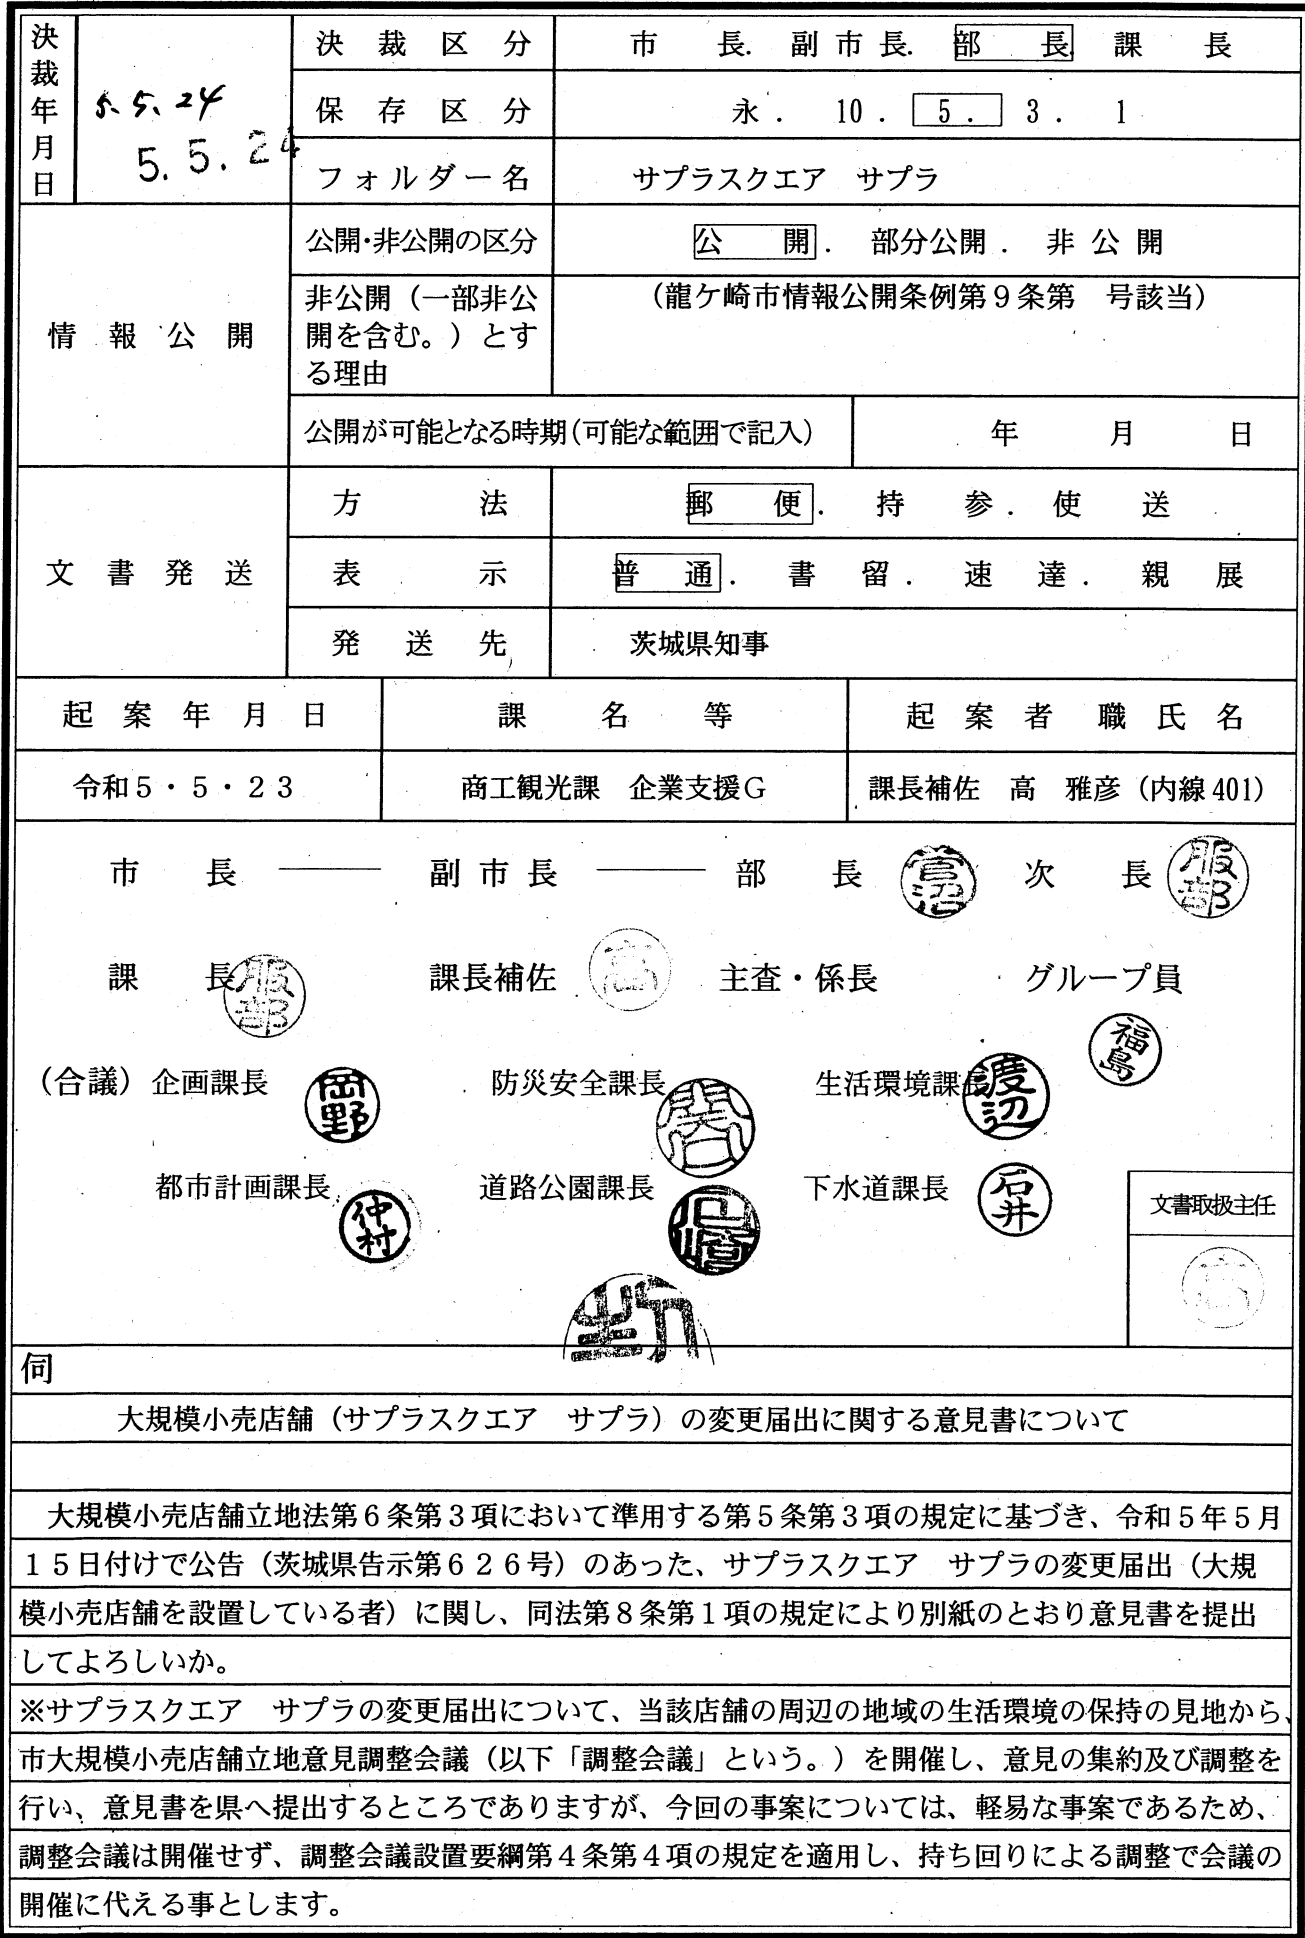 決裁年月日
5.5.24
5.5.24
決裁区分 市長．副市長．部長．課長
保存区分 永．10．5．3．1
フォルダー名 サプラスクエア　サプラ
情報公開
公開・非公開の区分 公開．部分公開．非公開
非公開（一部非公開を含む。）とする理由 （龍ケ崎市情報公開条例第９条第　号該当）
公開が可能となる時期（可能な範囲で記入） 年　月　日
文書発送
方法 郵便．持参．使送
表示 普通．書留．速達．親展
発送先 茨城県知事
起案年月日 課名等 起案者　職氏名
令和５・５・２３ 商工観光課　企業支援Ｇ 課長補佐　高　雅彦（内線401）
市長 ―― 副市長 ―― 部長 菅沼 次長 服部
課長 服部 課長補佐 高 主査・係長 グループ員
福島
（合議）企画課長 岡野 防災安全課長 関 生活環境課長 渡辺
都市計画課長 仲村 道路公園課長 下水道課長 石井
文書取扱主任
高
伺
大規模小売店舗（サプラスクエア　サプラ）の変更届出に関する意見書について
大規模小売店舗立地法第６条第３項において準用する第５条第３項の規定に基づき、令和５年５月
１５日付けで公告（茨城県告示第６２６号）のあった、サプラスクエア　サプラの変更届出（大規
模小売店舗を設置している者）に関し、同法第８条第１項の規定により別紙のとおり意見書を提出
してよろしいか。
※サプラスクエア　サプラの変更届出について、当該店舗の周辺の地域の生活環境の保持の見地から、
市大規模小売店舗立地意見調整会議（以下「調整会議」という。）を開催し、意見の集約及び調整を
行い、意見書を県へ提出するところでありますが、今回の事案については、軽易な事案であるため、
調整会議は開催せず、調整会議設置要綱第４条第４項の規定を適用し、持ち回りによる調整で会議の
開催に代える事とします。